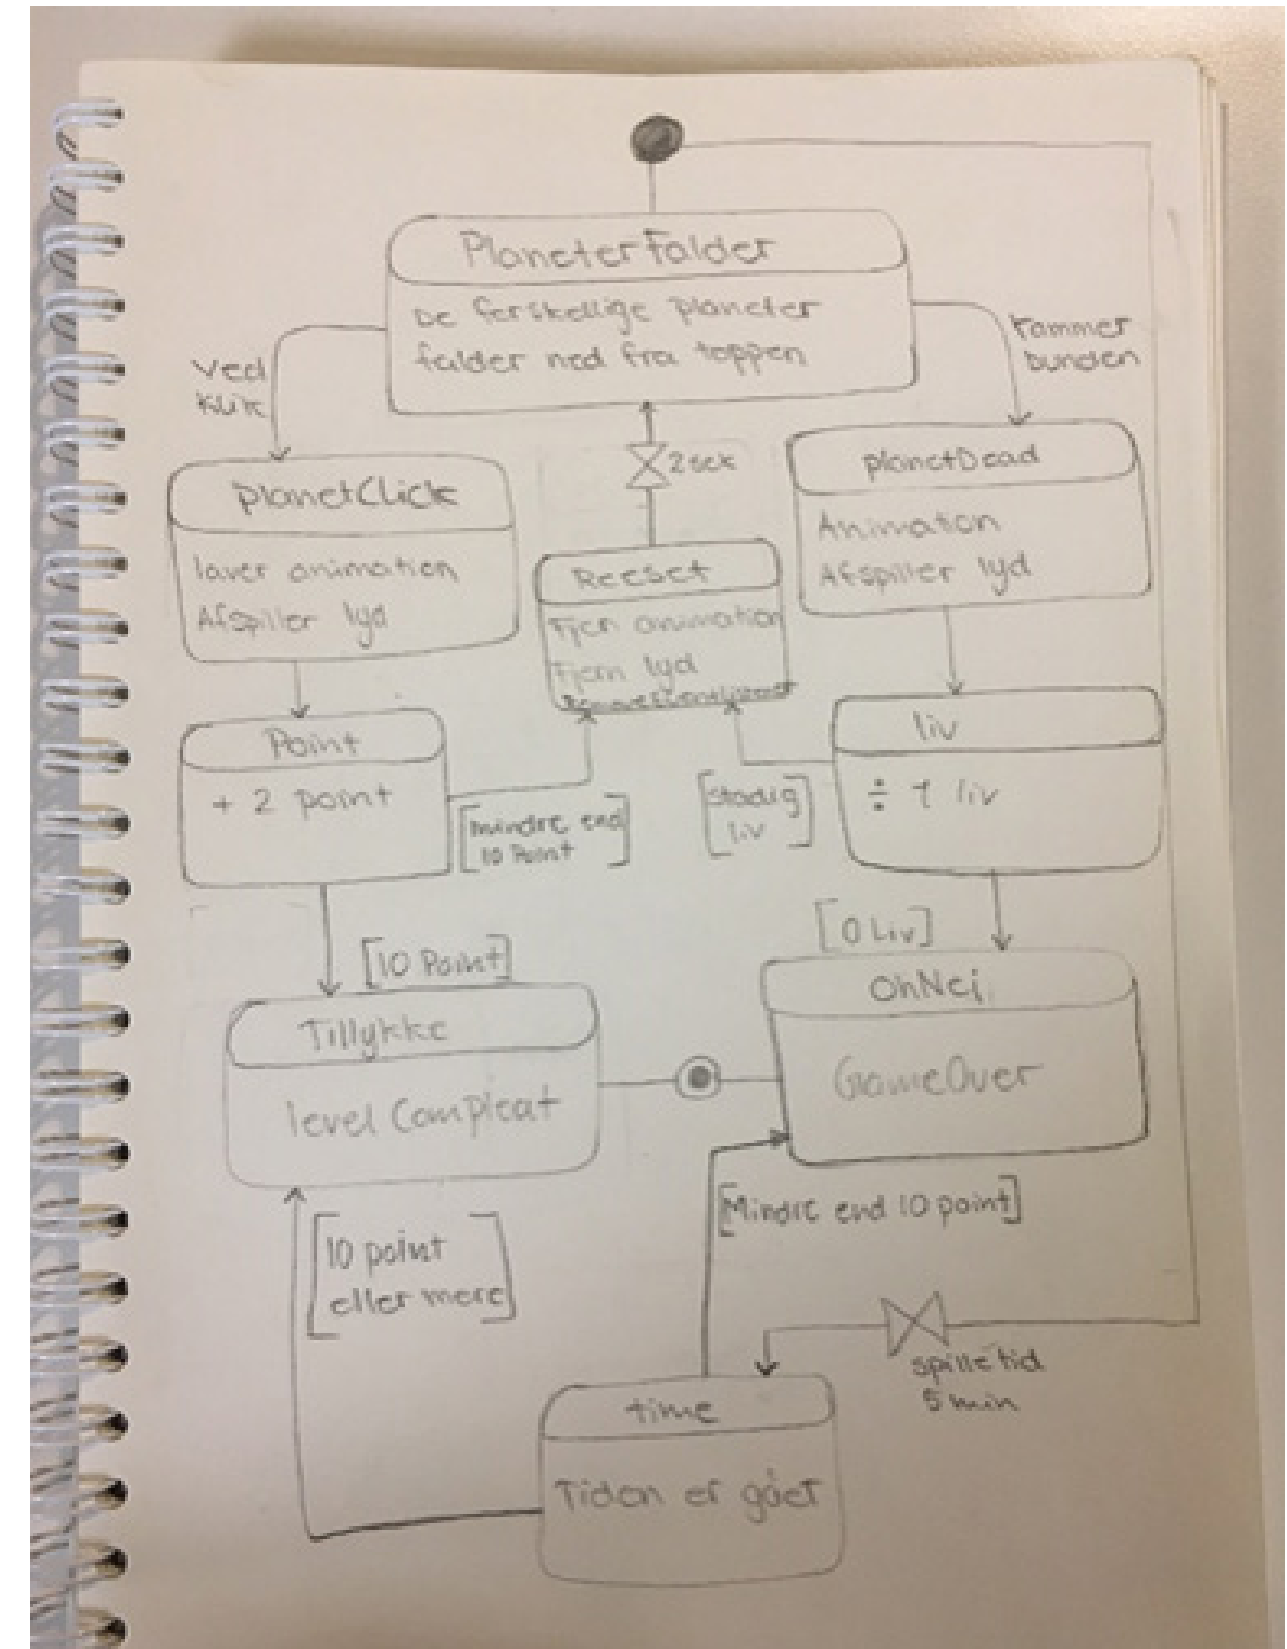 PlaneterFalder
De ferskellige planeter
falder ned fra toppen
Ved
klik
rammer
bunden
2 sek
planetClick
laver animation
Afspiller lyd
planetDead
Animation
Afspiller lyd
Reeset
Fjern animation
Fjern lyd
Point
+ 2 point
liv
÷ 1 liv
[mindre end
10 Point]
[stadig
liv]
[10 Point]
[0 Liv]
Tillykke
level Compleat
OhNej
GameOver
[Mindre end 10 point]
[10 point
eller mere]
spille tid
5 min
time
Tiden er gået